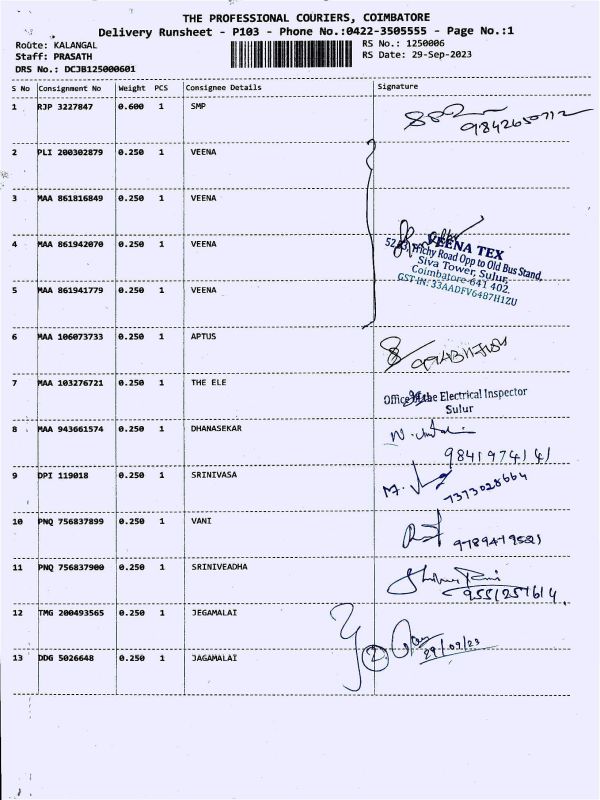 THE PROFESSIONAL COURIERS, COIMBATORE
Delivery Runsheet - P103 - Phone No.:0422-3505555 - Page No.:1
Route: KALANGAL RS No.: 1250006
Staff: PRASATH RS Date: 29-Sep-2023
DRS No.: DCJB125000601
S No Consignment No Weight PCS Consignee Details Signature
1 RJP 3227847 0.600 1 SMP
9842650712
2 PLI 200302879 0.250 1 VEENA
3 MAA 861816849 0.250 1 VEENA
4 MAA 861942070 0.250 1 VEENA
VEENA TEX
Trichy Road Opp to Old Bus Stand,
Siva Tower, Sulur,
Coimbatore-641 402.
GST-IN: 33AADFV6487H1ZU
5 MAA 861941779 0.250 1 VEENA
6 MAA 106073733 0.250 1 APTUS
7 MAA 103276721 0.250 1 THE ELE
Office of the Electrical Inspector
Sulur
8 MAA 943661574 0.250 1 DHANASEKAR
9841974141
9 DPI 119018 0.250 1 SRINIVASA
7373028664
10 PNQ 756837899 0.250 1 VANI
9789479521
11 PNQ 756837900 0.250 1 SRINIVEADHA
9551251614
12 TMG 200493565 0.250 1 JEGAMALAI
2
29/09/23
13 DDG 5026648 0.250 1 JAGAMALAI